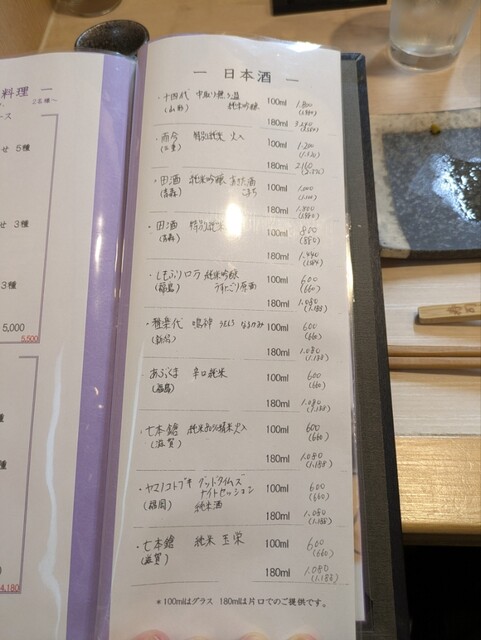 料理 ー
2名様～
ース
せ 5種
せ 3種
3種
5,000
5,500
4,180
― 日本酒 ―
・十四代 中取り無ろ過 100ml 1.800
(山形) 純米吟醸
180ml 3.240
・而今 特別純米 火入 100ml 1.200
(三重) (1.320)
180ml 2.160
・田酒 純米吟醸 100ml 1.000
(青森) こまち (1.100)
180ml 1.800
・田酒 特別純米 100ml 800
(青森) (880)
180ml 1.440
(1.584)
・しもふりロ万 純米吟醸 100ml 600
(福島) うすにごり原酒 (660)
180ml 1.080
(1.188)
鳴神 なるかみ 100ml 600
(660)
180ml 1.080
(1.188)
あぶくま 辛口純米 100ml 600
(福島) (660)
180ml 1.080
(1.188)
・七本鎗 純米 火入 100ml 600
(滋賀) (660)
180ml 1.080
(1.188)
・ヤマノコトブキ グッドタイムズ 100ml 600
ナイトセッション (660)
(福岡) 純米酒 180ml 1.080
(1.188)
・七本鎗 純米 玉栄 100ml 600
(滋賀) (660)
180ml 1.080
(1.188)
＊100mlはグラス 180mlは片口でのご提供です。